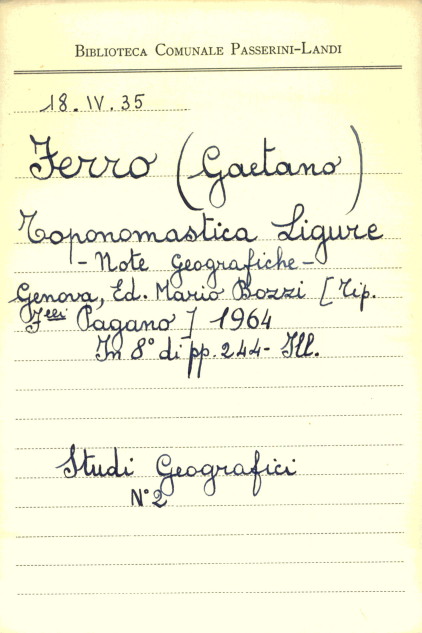 BIBLIOTECA COMUNALE PASSERINI-LANDI
18. IV. 35
Ferro (Gaetano)
Toponomastica Ligure
- Note Geografiche -
Genova, Ed. Mario Bozzi [Tip.
F.lli Pagano] 1964
In 8° di pp. 244 - Ill.
Studi Geografici
N° 2